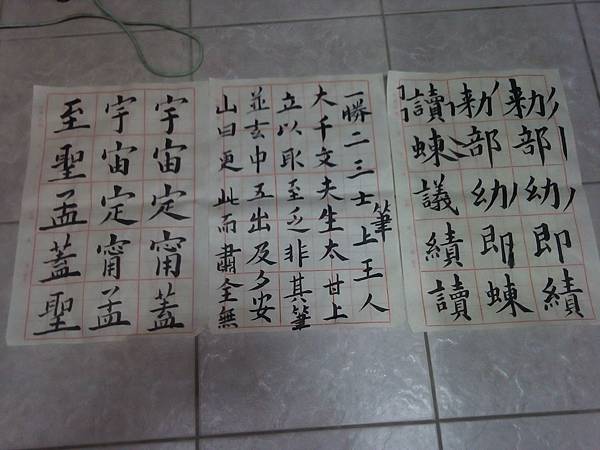 勅部幼即績
勅部幼即蝀
讀蝀議績讀
一勝二三士上王人
筆
大千文夫生太世上
立以取至乏非其筆
並玄中五出及多安
山曰更此而肅全無
宇宙定甯蓋
宇宙定甯孟
至聖孟蓋聖